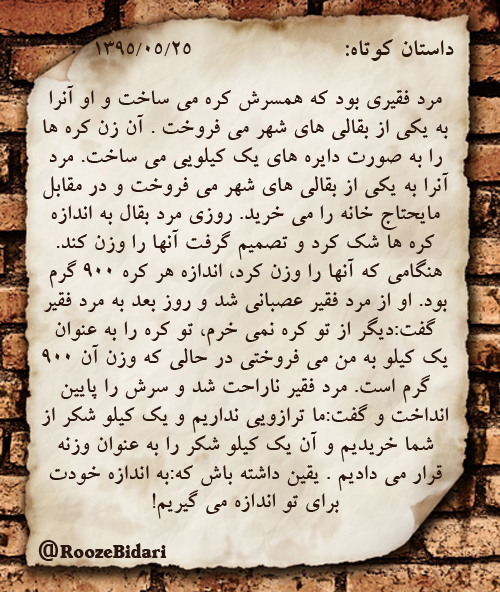 داستان کوتاه: ۱۳۹۵/۰۵/۲۵
مرد فقیری بود که همسرش کره می ساخت و او آنرا
به یکی از بقالی های شهر می فروخت . آن زن کره ها
را به صورت دایره های یک کیلویی می ساخت. مرد
آنرا به یکی از بقالی های شهر می فروخت و در مقابل
مایحتاج خانه را می خرید. روزی مرد بقال به اندازه
کره ها شک کرد و تصمیم گرفت آنها را وزن کند.
هنگامی که آنها را وزن کرد، اندازه هر کره ۹۰۰ گرم
بود. او از مرد فقیر عصبانی شد و روز بعد به مرد فقیر
گفت:دیگر از تو کره نمی خرم، تو کره را به عنوان
یک کیلو به من می فروختی در حالی که وزن آن ۹۰۰
گرم است. مرد فقیر ناراحت شد و سرش را پایین
انداخت و گفت:ما ترازویی نداریم و یک کیلو شکر از
شما خریدیم و آن یک کیلو شکر را به عنوان وزنه
قرار می دادیم . یقین داشته باش که:به اندازه خودت
برای تو اندازه می گیریم!
@RoozeBidari